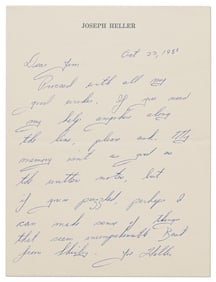 JOSEPH HELLER
Oct 22, 19
Dear Jim
Proceed with all my
good wishes. If you need
my help, anywhere along
the line, please ask. My
memory isn't as good as
the written notes, but
if you're puzzled, perhaps I
can make sense of things
that seem incomprehensible. Best
from Shirley. Joe Heller